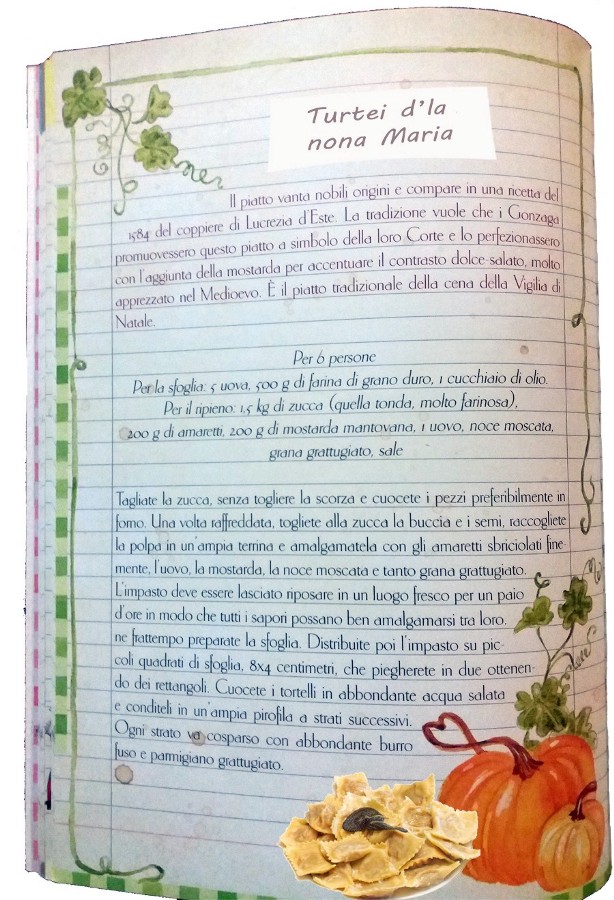 Turtei d'la
nona Maria
Il piatto vanta nobili origini e compare in una ricetta del
1584 del coppiere di Lucrezia d'Este. La tradizione vuole che i Gonzaga
promuovessero questo piatto a simbolo della loro Corte e lo perfezionassero
con l'aggiunta della mostarda per accentuare il contrasto dolce-salato, molto
apprezzato nel Medioevo. È il piatto tradizionale della cena della Vigilia di
Natale.
Per 6 persone
Per la sfoglia: 5 uova, 500 g di farina di grano duro, 1 cucchiaio di olio.
Per il ripieno: 1,5 kg di zucca (quella tonda, molto farinosa),
200 g di amaretti, 200 g di mostarda mantovana, 1 uovo, noce moscata,
grana grattugiato, sale
Tagliate la zucca, senza togliere la scorza e cuocete i pezzi preferibilmente in
forno. Una volta raffreddata, togliete alla zucca la buccia e i semi, raccogliete
la polpa in un'ampia terrina e amalgamatela con gli amaretti sbriciolati fine-
mente, l'uovo, la mostarda, la noce moscata e tanto grana grattugiato.
L'impasto deve essere lasciato riposare in un luogo fresco per un paio
d'ore in modo che tutti i sapori possano ben amalgamarsi tra loro.
ne frattempo preparate la sfoglia. Distribuite poi l'impasto su pic-
coli quadrati di sfoglia, 8x4 centimetri, che piegherete in due ottenen-
do dei rettangoli. Cuocete i tortelli in abbondante acqua salata
e conditeli in un'ampia pirofila a strati successivi.
Ogni strato va cosparso con abbondante burro
fuso e parmigiano grattugiato.